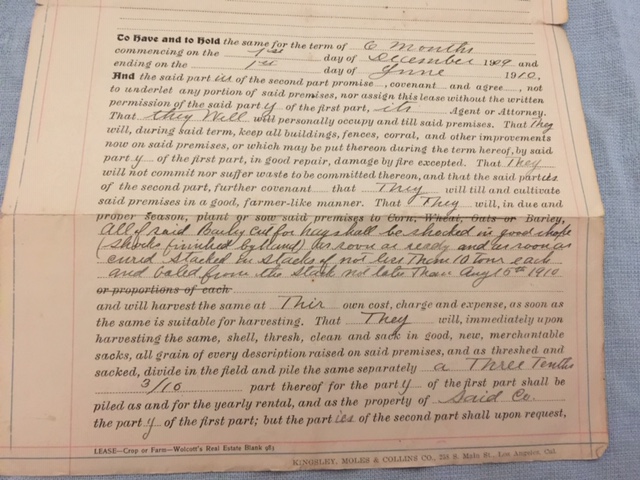 To Have and to Hold the same for the term of 6 Months
commencing on the 1st day of December 1909 and
ending on the 1st day of June 1910,
And the said part ies of the second part promise , covenant and agree , not
to underlet any portion of said premises, nor assign this lease without the written
permission of the said part y of the first part, its Agent or Attorney.
That they Will will personally occupy and till said premises. That They
will, during said term, keep all buildings, fences, corral, and other improvements
now on said premises, or which may be put thereon during the term hereof, by said
part y of the first part, in good repair, damage by fire excepted. That They
will not commit nor suffer waste to be committed thereon, and that the said parties
of the second part, further covenant that They will till and cultivate
said premises in a good, farmer-like manner. That They will, in due and
proper season, plant or sow said premises to Corn, Wheat, Oats or Barley,
All of said Barley cut for hay shall be shocked in good shape
(Shocks finished by hand) as soon as ready and as soon as
cured Stacked in Stacks of not less Than 10 tons each
and baled from the Stack not later Than Aug 15th 1910
or proportions of each
and will harvest the same at Thir own cost, charge and expense, as soon as
the same is suitable for harvesting. That They will, immediately upon
harvesting the same, shell, thresh, clean and sack in good, new, merchantable
sacks, all grain of every description raised on said premises, and as threshed and
sacked, divide in the field and pile the same separately a Three Tenths
3/10 part thereof for the part y of the first part shall be
piled as and for the yearly rental, and as the property of Said Co.
the part y of the first part; but the part ies of the second part shall upon request,
LEASE—Crop or Farm—Wolcott's Real Estate Blank 983
KINGSLEY, MOLES & COLLINS CO., S. Main St., Los Angeles, Cal.